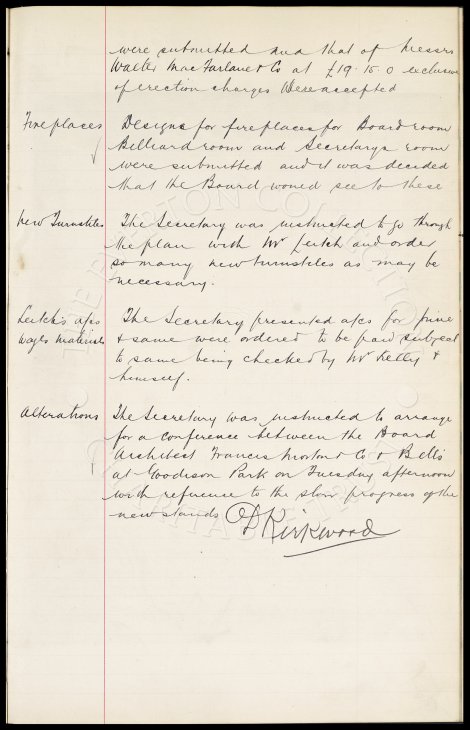 were submitted and that of Messrs
Walter MacFarlane & Co at £19.15.0 exclusive
of erection charges were accepted
Fireplaces
Designs for fireplaces for Boardroom
Billiard room and Secretarys room
were submitted and it was decided
that the Board would see to these
New Turnstiles
The Secretary was instructed to go through
the plan with Mr Leitch and order
so many new turnstiles as may be
necessary.
Leitch's a/cs
Wages Materials
The Secretary presented a/cs for June
& same were ordered to be paid subject
to same being checked by Mr Kelly &
himself.
Alterations
The Secretary was instructed to arrange
for a conference between the Board
Architect Francis Morton & Co & Bells
at Goodison Park on Tuesday afternoon
with reference to the slow progress of the
new stands
D Kirkwood
THE EVERTON COLLECTION
CHARITABLE TRUST